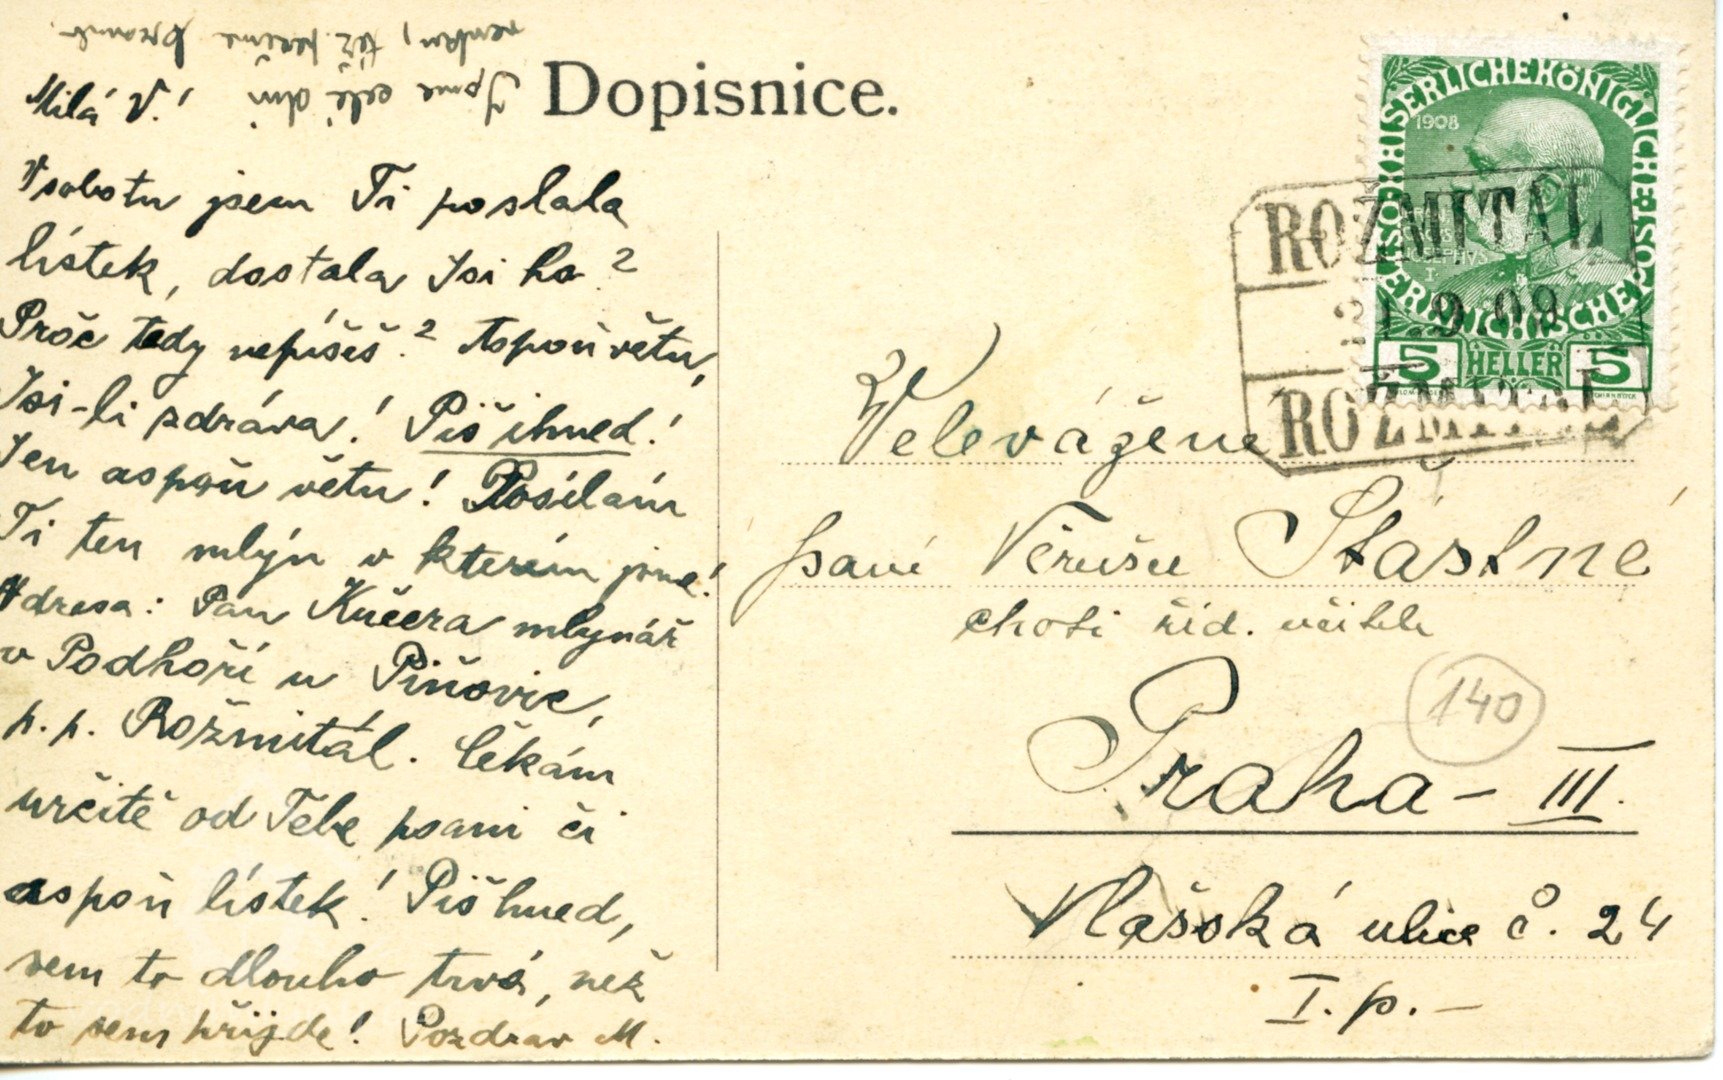 Dopisnice.
Jsme celé dni
venku, též pečeme
Milá V.!
V sobotu jsem Ti poslala
lístek, dostala Jsi ho?
Proč tedy nepíšeš? Aspoň větu,
Jsi-li zdráva! Piš ihned!
Jen aspoň větu! Posílám
Ti ten mlýn v kterém jsme!
Adresa: Pan Kučera mlynář
v Podhoří u Piňovic,
p. p. Rožmitál. Čekám
určitě od Tebe psaní či
aspoň lístek! Piš hned,
sem to dlouho trvá, než
to sem přijde! Pozdrav M.
KAISERLICHE KÖNIGLICHE ÖSTERREICHISCHE POST
1908
5 HELLER 5
ROŽMITÁL
9 08
ROŽMITÁL
Velevážené
paní Věrušce Šťastné
choti říd. učitele
140
Praha - III.
Vlašská ulice č. 24
I. p. -